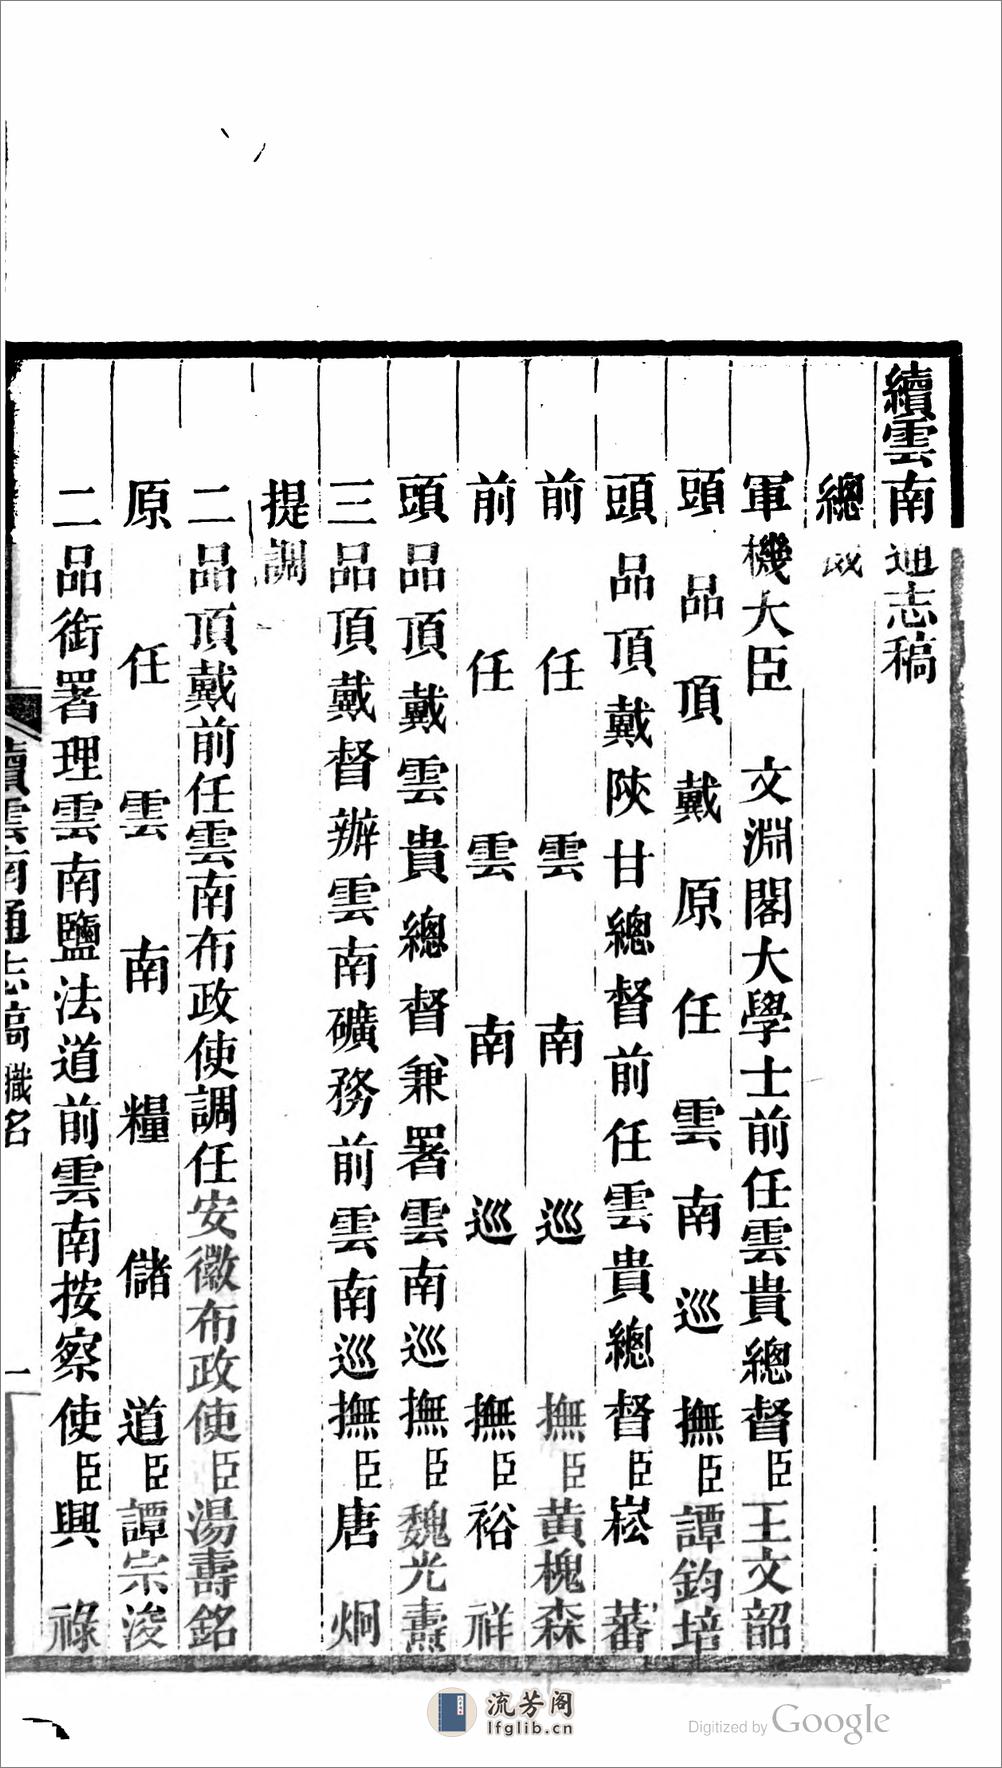 續雲南通志稿
總裁
軍機大臣　文淵閣大學士前任雲貴總督臣王文韶
頭品頂戴原任雲南巡撫臣譚鈞培
頭品頂戴陝甘總督前任雲貴總督臣崧　蕃
前任雲南巡撫臣黃槐森
前任雲南巡撫臣裕　祥
頭品頂戴雲貴總督兼署雲南巡撫臣魏光燾
三品頂戴督辦雲南礦務前雲南巡撫臣唐　炯
提調
二品頂戴前任雲南布政使調任安徽布政使臣湯壽銘
原任雲南糧儲道臣譚宗浚
二品銜署理雲南鹽法道前雲南按察使臣興　祿
續雲南通志稿　職名　一
流芳阁
lfglib.cn
Digitized by Google